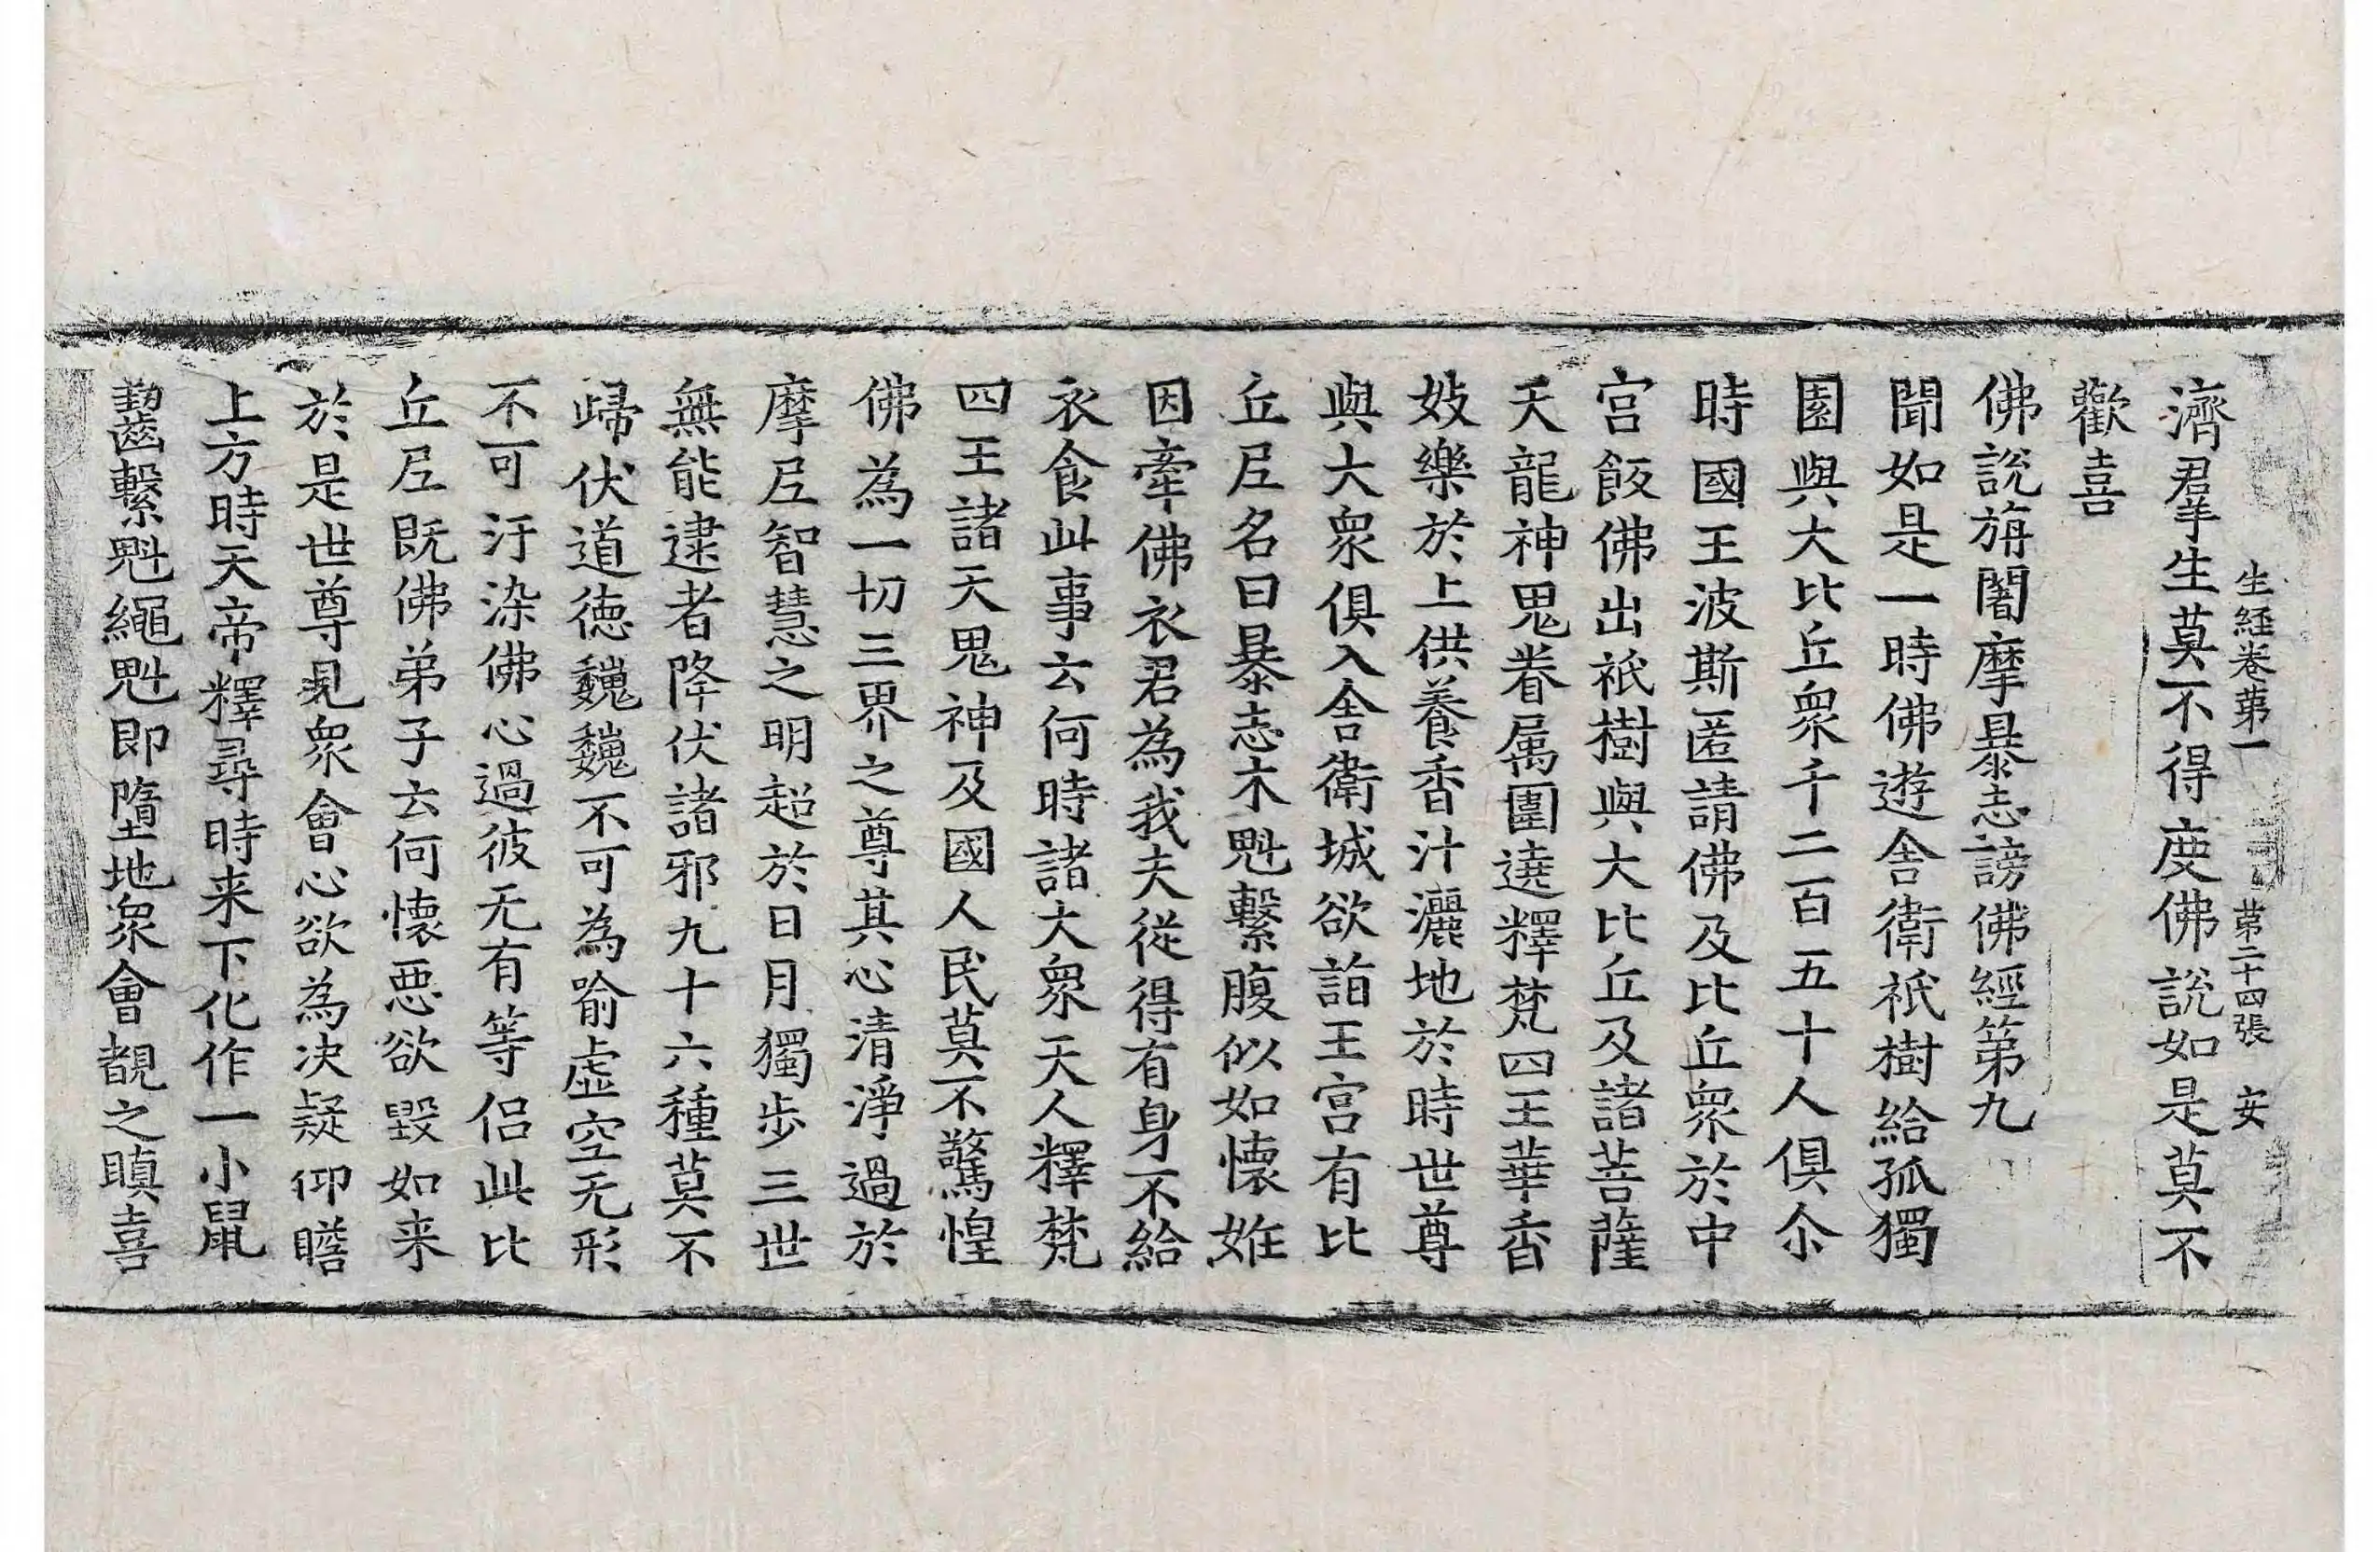 生經卷第一 第二十四張 安
濟羣生莫不得度佛說如是莫不
歡喜
佛說旃闍摩暴志謗佛經第九
聞如是一時佛遊舍衛祇樹給孤獨
園與大比丘衆千二百五十人俱尒
時國王波斯匿請佛及比丘衆於中
宮飯佛出祇樹與大比丘及諸菩薩
天龍神鬼眷属圍遶釋梵四王華香
妓樂於上供養香汁灑地於時世尊
與大衆俱入舍衛城欲詣王宮有比
丘尼名曰暴志木魁繫腹似如懷妊
因牽佛衣君為我夫從得有身不給
衣食此事云何時諸大衆天人釋梵
四王諸天鬼神及國人民莫不驚惶
佛為一切三界之尊其心清淨過於
摩尼智慧之明超於日月獨步三世
無能逮者降伏諸邪九十六種莫不
歸伏道德巍巍不可為喻虛空无形
不可汙染佛心過彼无有等侶此比
丘尼既佛弟子云何懷惡欲毀如来
於是世尊見衆會心欲為决疑仰瞻
上方時天帝釋尋時来下化作一小鼠
齧繫魁繩魁即墮地衆會覩之瞋喜